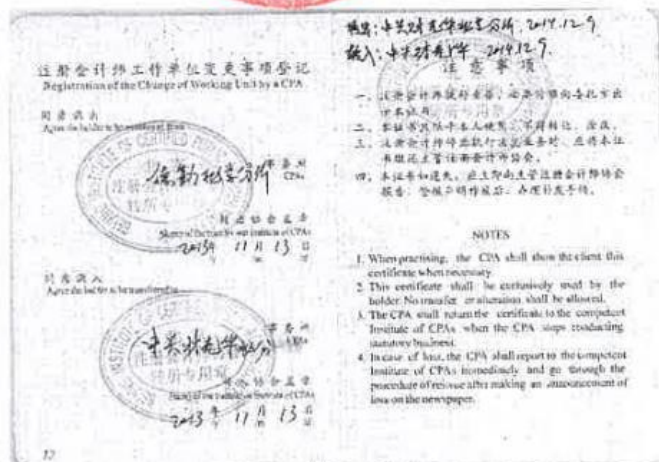 注册会计师工作单位变更事项登记
Registration of the Change of Working Unit by a CPA
同意调出
Agree the holder to be transferred from
德勤北京分所
事务所
CPAs
转出协会盖章
Stamp of the transfer-out Institute of CPAs
2013年 11月 13日
同意调入
Agree the holder to be transferred to
事务所
CPAs
转入协会盖章
Stamp of the transfer-in Institute of CPAs
2013年 11月 13日
12
2014.12.9
2014.12.9
注意事项
一、注册会计师执行业务,必要时须向委托方出示本证书。
二、本证书只限于本人使用,不得转让、涂改。
三、注册会计师停止执行法定业务时,应将本证书缴还主管注册会计师协会。
四、本证书如遗失,应立即向主管注册会计师协会报告,登报声明作废后,办理补发手续。
NOTES
1. When practising, the CPA shall show the client this
certificate when necessary.
2. This certificate shall be exclusively used by the
holder. No transfer or alteration shall be allowed.
3. The CPA shall return the certificate to the competent
Institute of CPAs when the CPA stops conducting
statutory business.
4. In case of loss, the CPA shall report to the competent
Institute of CPAs immediately and go through the
procedure of reissue after making an announcement of
loss on the newspaper.